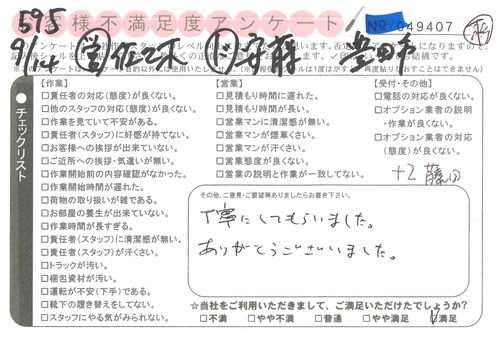 595
お客様不満足度アンケート
No 049407
9/14 佐々木 守屋 豊田市
チェックリスト
【作業】
□責任者の対応(態度)が良くない。
□他のスタッフの対応(態度)が良くない。
□作業を見ていて不安がある。
□責任者(スタッフ)に好感が持てない。
□お客様への挨拶が出来ていない。
□ご近所への挨拶・気遣いが無い。
□作業開始前の内容確認がなかった。
□作業開始時間が遅れた。
□荷物の取り扱いが雑である。
□お部屋の養生が出来ていない。
□作業時間が長すぎる。
□責任者(スタッフ)に清潔感が無い。
□責任者(スタッフ)が汗くさい。
□トラックが汚い。
□梱包資材が汚い。
□運転が不安(下手)である。
□靴下の履き替えをしてない。
□スタッフにやる気がみられない。
【営業】
□見積もり時間に遅れた。
□見積もり時間が長い。
□営業マンに清潔感が無い。
□営業マンが煙草くさい。
□営業マンが汗くさい。
□営業態度が良くない。
□営業の説明と作業が一致してない。
【受付・その他】
□電話の対応が良くない。
□オプション業者の説明
・作業が良くない。
□オプション業者の対応
(態度)が良くない。
その他、ご意見・ご要望等ありましたらお書き下さい。
丁寧にしてもらいました。
ありがとうございました。
☆当社をご利用いただきまして、ご満足いただけたでしょうか?
□不満 □やや不満 □普通 □やや満足 □満足